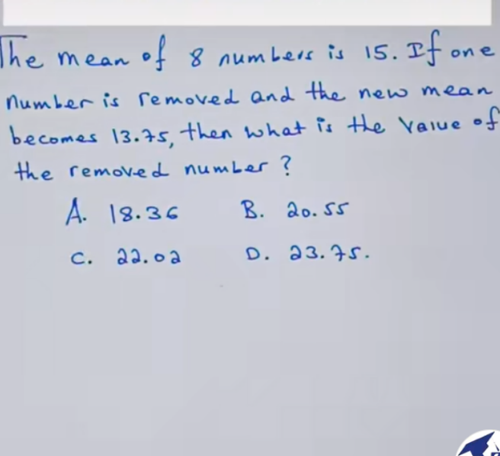 The mean of 8 numbers is 15. If one
number is removed and the new mean
becomes 13.75, then what is the value of
the removed number?
A. 18.36 B. 20.55
C. 22.02 D. 23.75.